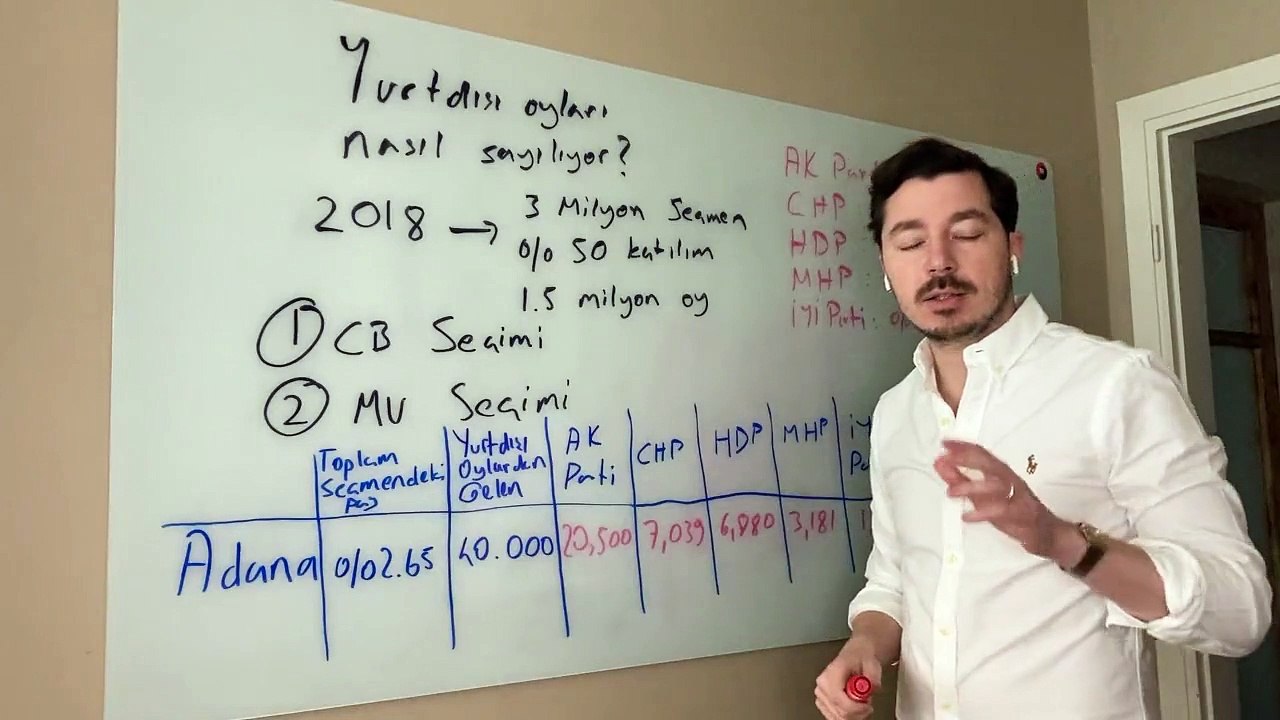 Yurtdışı oyları
nasıl sayılıyor?
2018 → 3 Milyon Seçmen
% 50 katılım
1.5 milyon oy
AK
CHP
HDP
MHP
İYİ Parti:
① CB Seçimi
② MV Seçimi
Toplam Seçmendeki Pay
Yurtdışı Oylardan Gelen
AK Parti
CHP
HDP
MHP
Adana %2.65 40.000 20,500 7,039 6,880 3,181